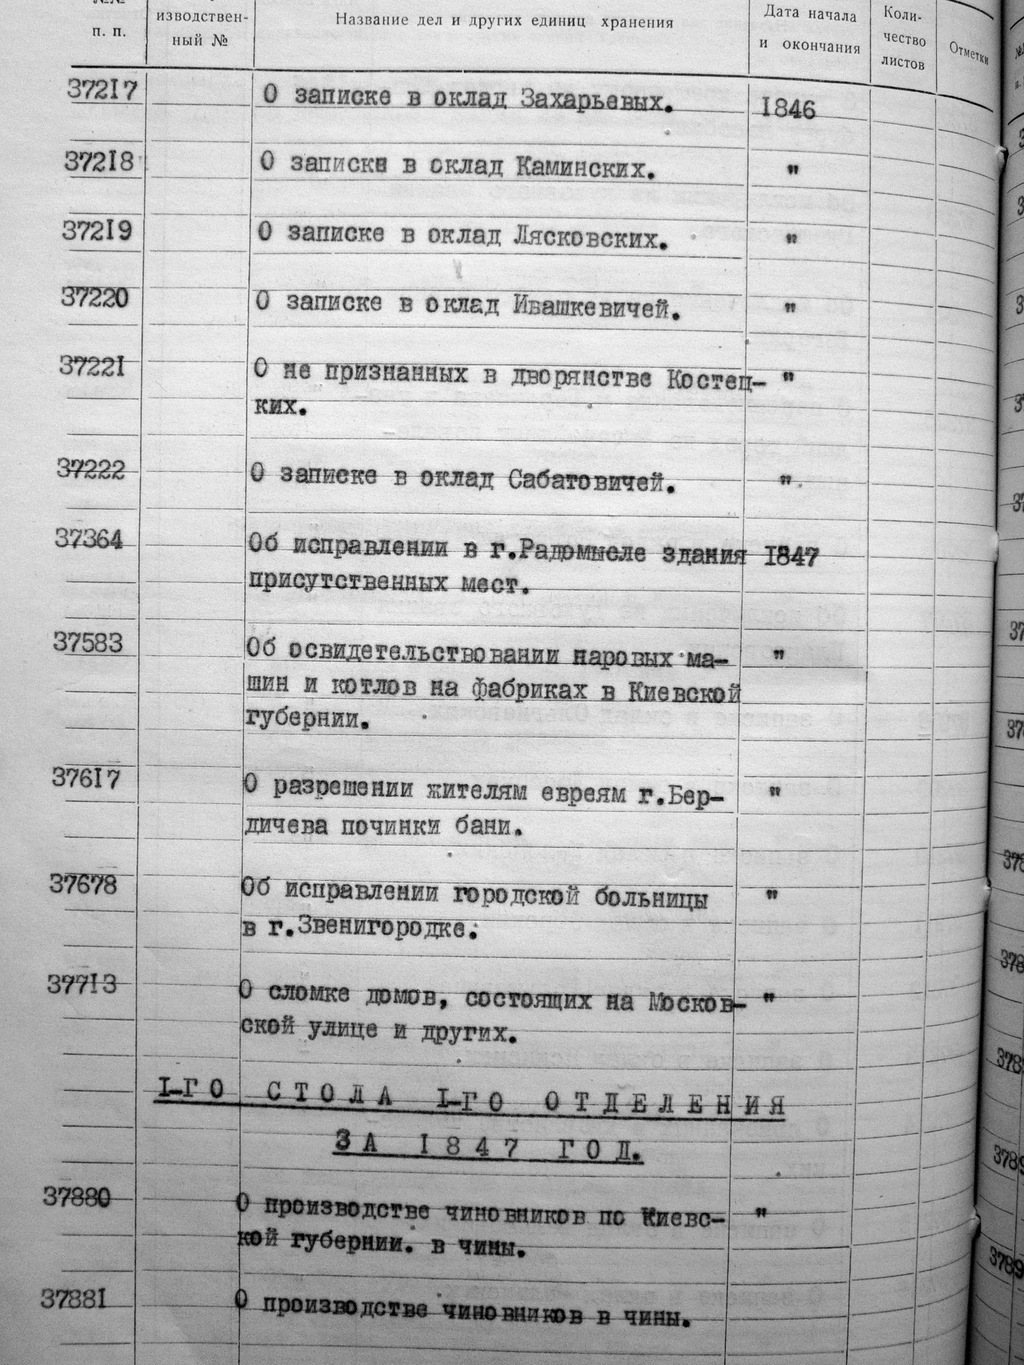 №№ изводствен- Название дел и других единиц хранения Дата начала Коли-
п. п. ный № и окончания чество Отметки
листов
37217 О записке в оклад Захарьевых. 1846
37218 О записке в оклад Каминских. "
37219 О записке в оклад Лясковских. "
37220 О записке в оклад Ивашкевичей. "
37221 О не признанных в дворянстве Костец- "
ких.
37222 О записке в оклад Сабатовичей. "
37364 Об исправлении в г.Радомысле здания 1847
присутственных мест.
37583 Об освидетельствовании паровых ма- "
шин и котлов на фабриках в Киевской
губернии.
37617 О разрешении жителям евреям г.Бер- "
дичева починки бани.
37678 Об исправлении городской больницы "
в г.Звенигородке.
37713 О сломке домов, состоящих на Москов- "
ской улице и других.
I-ГО СТОЛА I-ГО ОТДЕЛЕНИЯ
ЗА 1847 ГОД.
37880 О производстве чиновников по Киевс- "
кой губернии. в чины.
37881 О производстве чиновников в чины.